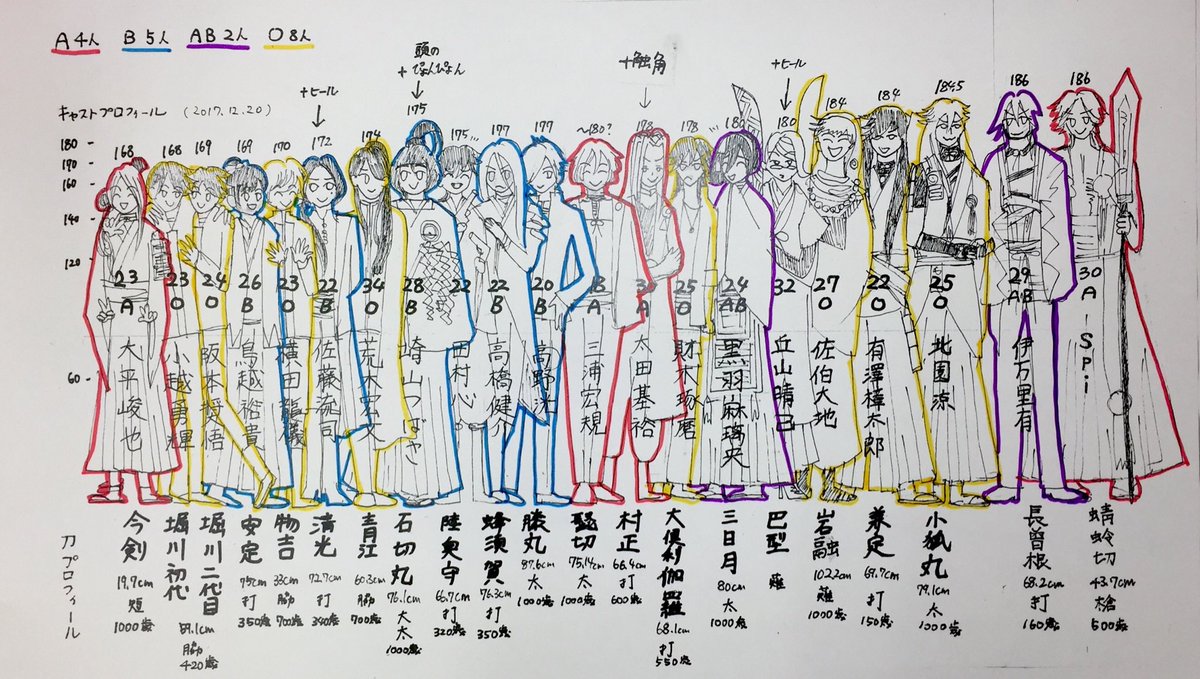 A4人 B5人 AB2人 O8人
キャストプロフィール (2017.12.20)
+ヒール
頭の
+ぴょんぴょん
+触角
+ヒール
180
170
160
140
120
60
168
168
169
169
170
172
174
175
175…
177
177
~180?
178
178
180
180
184
184
184.5
186
186
23 A 大平峻也
23 O 小越勇輝
24 O 阪本奨悟
26 B 鳥越裕貴
23 O 横田龍儀
22 B 佐藤流司
34 O 荒木宏文
28 B 崎山つばさ
22 田村心
22 B 高橋健介
20 B 高野洸
A 三浦宏規
A 太田基裕
25 O 財木琢磨
24 AB 黒羽麻璃央
32 丘山晴己
27 O 佐伯大地
22 O 有澤樟太郎
25 O 北園涼
29 AB 伊万里有
30 A Spi
刀プロフィール
今剣 19.7cm 短 1000歳
堀川初代
堀川二代目 59.1cm 脇 420歳
安定 75cm 打 350歳
物吉 33cm 脇 700歳
清光 72.7cm 打 340歳
青江 60.3cm 脇 700歳
石切丸 76.1cm 大太 1000歳
陸奥守 66.7cm 打 320歳
蜂須賀 76.3cm 打 350歳
膝丸 87.6cm 太 1000歳
髭切 75.14cm 太 1000歳
村正 66.4cm 打 600歳
大倶利伽羅 68.1cm 打 550歳
三日月 80cm 太 1000歳
巴型 薙
岩融 102.2cm 薙 1000歳
兼定 69.7cm 打 150歳
小狐丸 79.1cm 太 1000歳
長曽根 68.2cm 打 160歳
蜻蛉切 43.7cm 槍 500歳